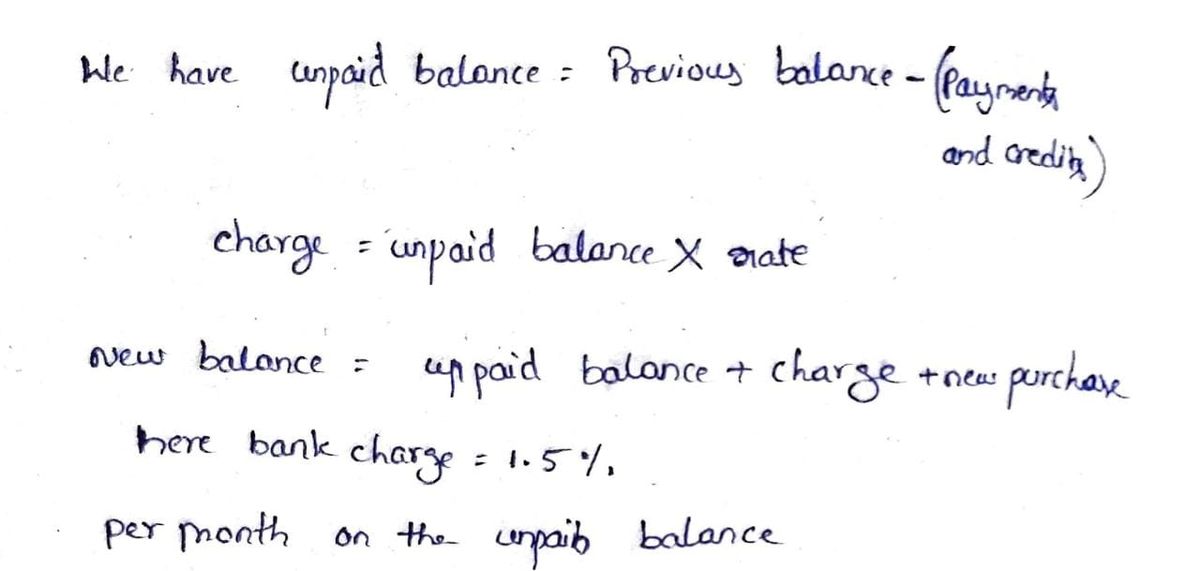 We have unpaid balance = Previous balance - (Payments
and credits)
charge = unpaid balance X rate
New balance = uppaid balance + charge + new purchase
here bank charge = 1.5 %.
per month on the unpaib balance